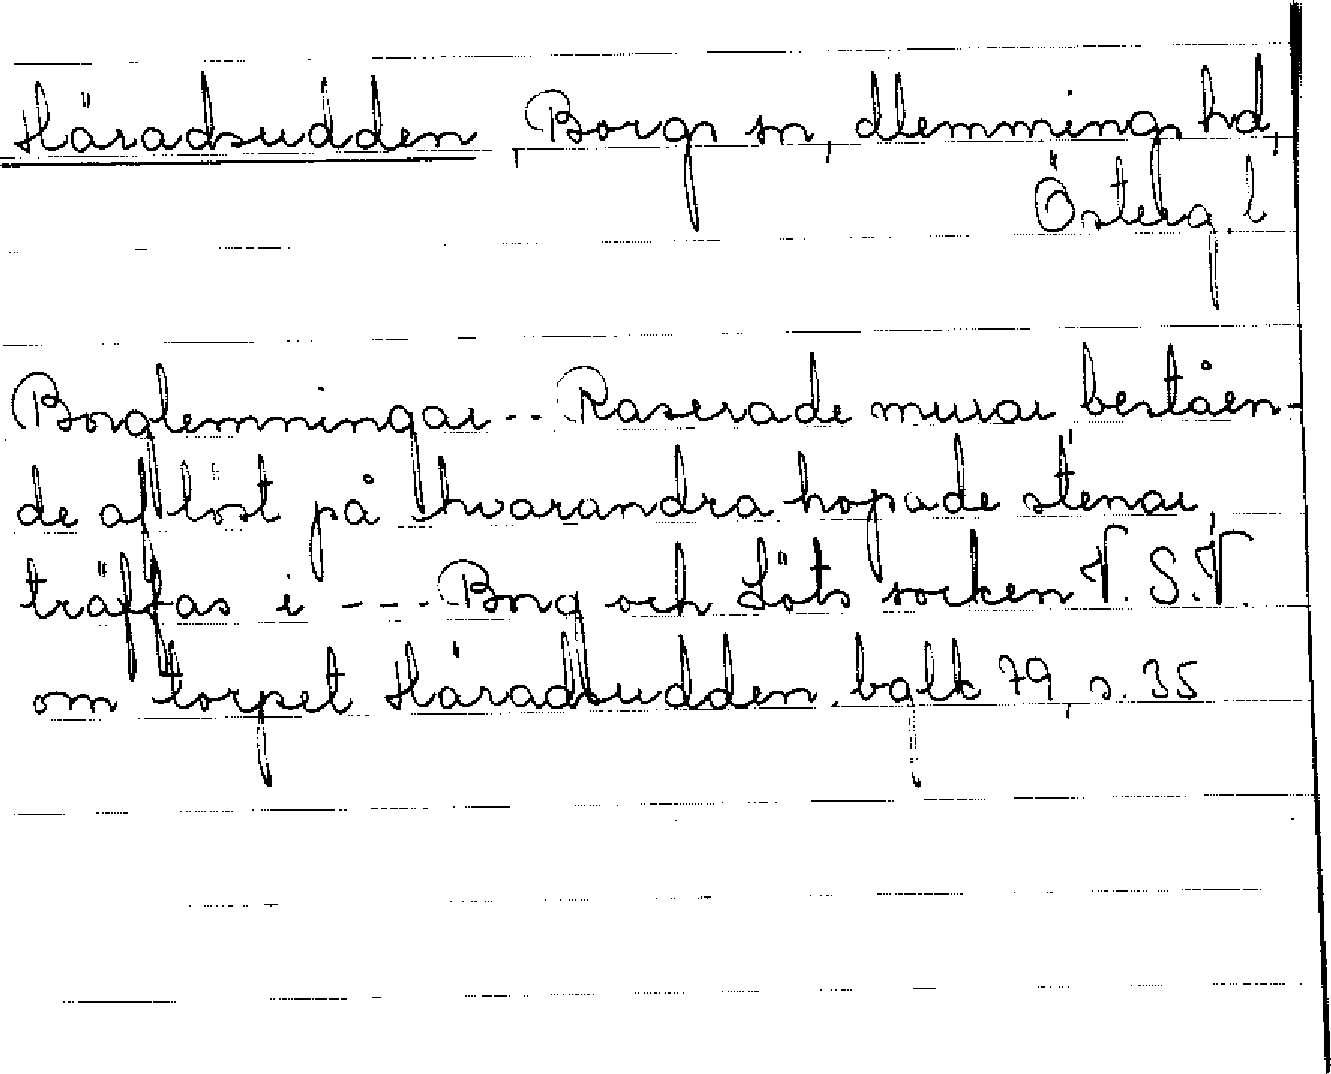 Häradsudden, Borgs sn, Memmings hd,
Österg. l
Borglemningar -- Raserade murar bestående-
de af löst på hvarandra hopade stenar,
träffas i --- Borg och Löts socken V. S. V.
om torpet Häradsudden. bglk 79, s. 35